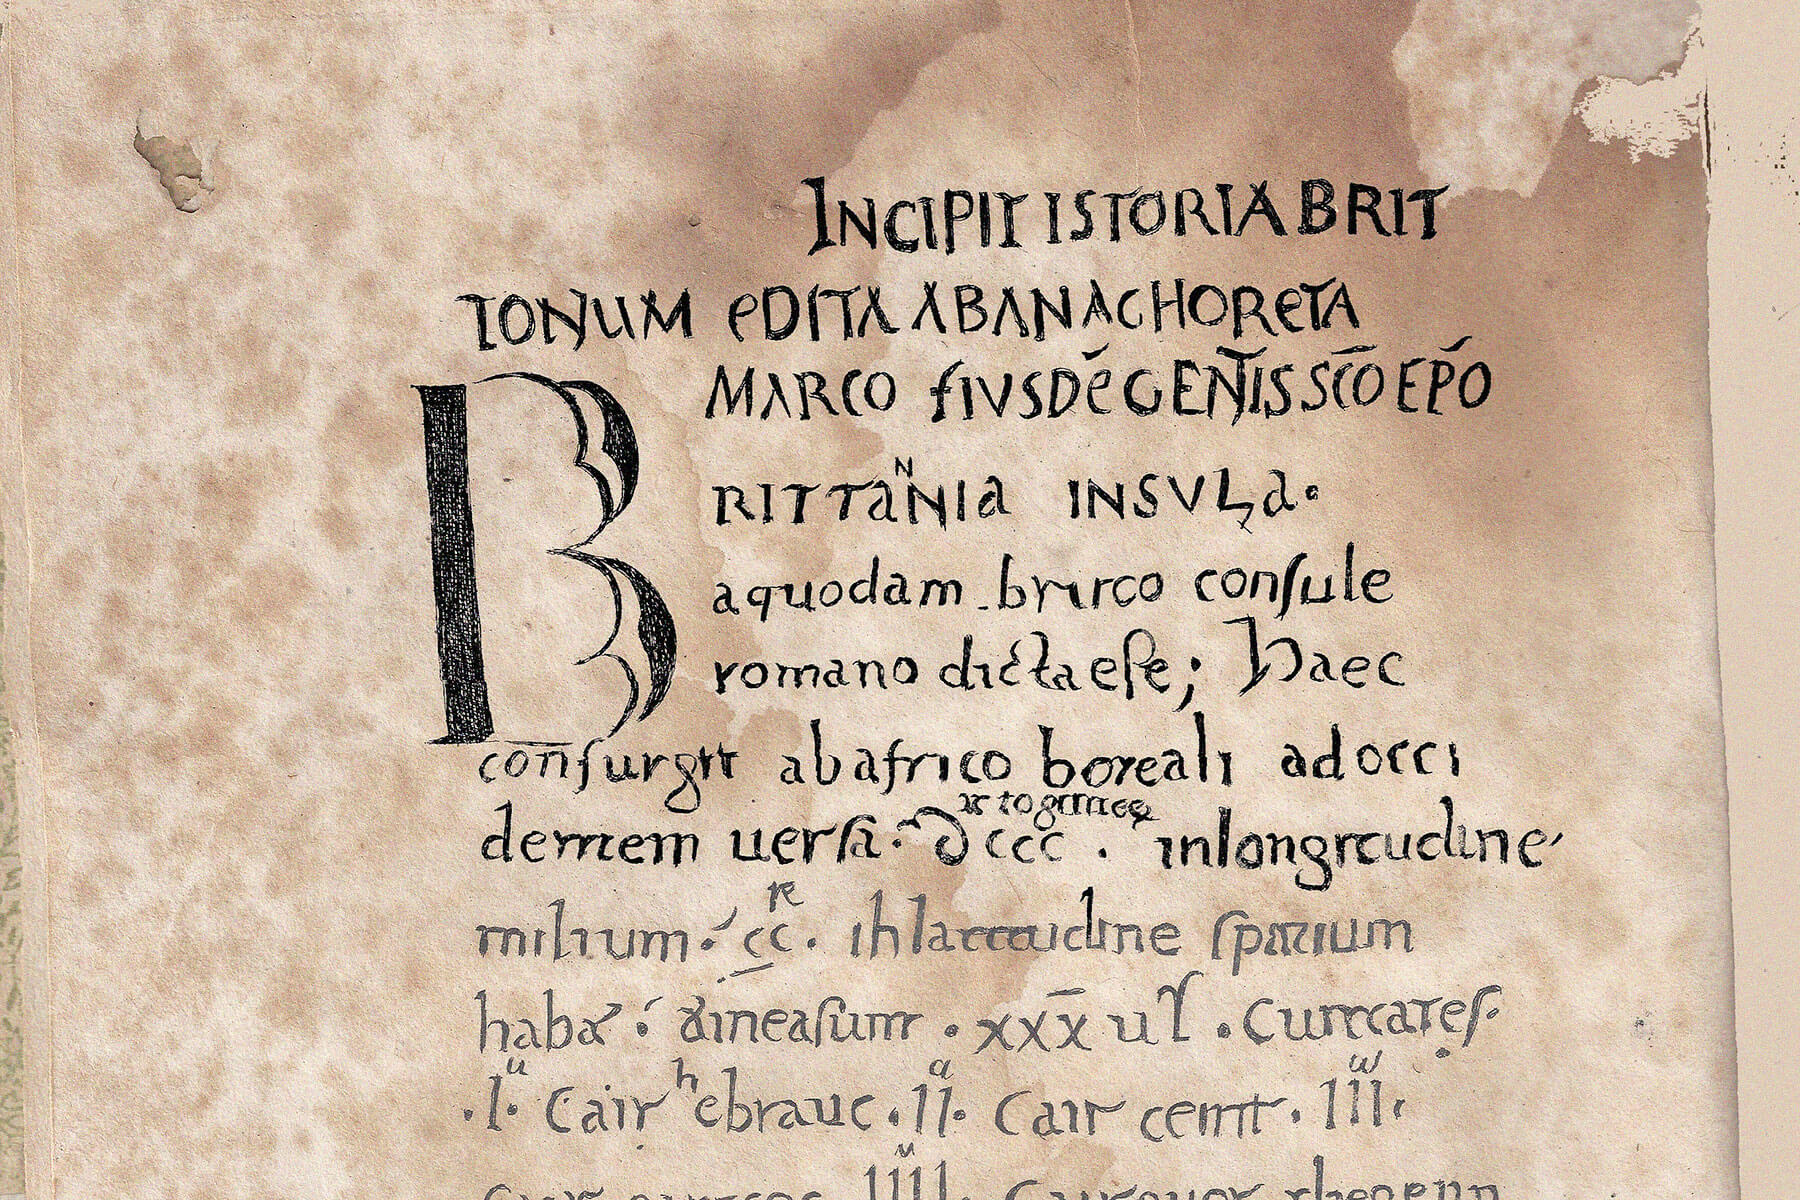 INCIPIT ISTORIA BRIT
TONUM EDITA AB ANACHORETA
MARCO EIUSDĒ GENTIS SC̄O EP̄O
BRITTANNIA INSULA.
a quodam brirco consule
romano dicta esse; Haec
consurgit ab africo boreali ad occi
dentem uersa. dccc. in longitudine
milium. cc. in latitudine spatium
habet. & in ea sunt. xxx uł. Ciuitates.
.I. Cair hebrauc. II. Cair ceint. III.